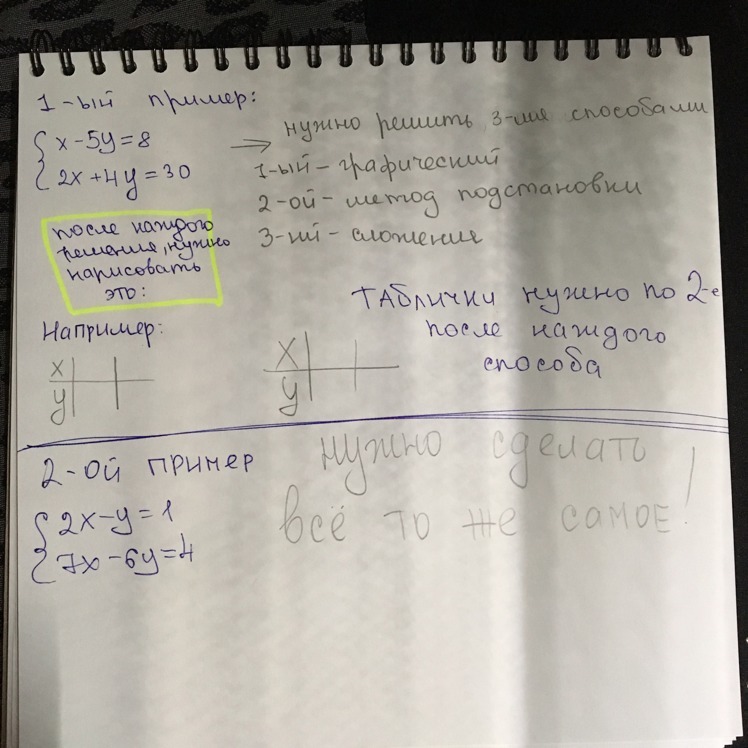 1-ый пример:
{ x-5y=8
2x+4y=30
→ нужно решить 3-мя способами
1-ый-графический
2-ой-метод подстановки
3-ий-сложения
после каждого
решения, нужно
нарисовать
это:
Таблички нужно по 2-е
после каждого
способа
Например:
x
y
x
y
2-ой пример
{ 2x-y=1
7x-6y=4
нужно сделать
всё то же самое!